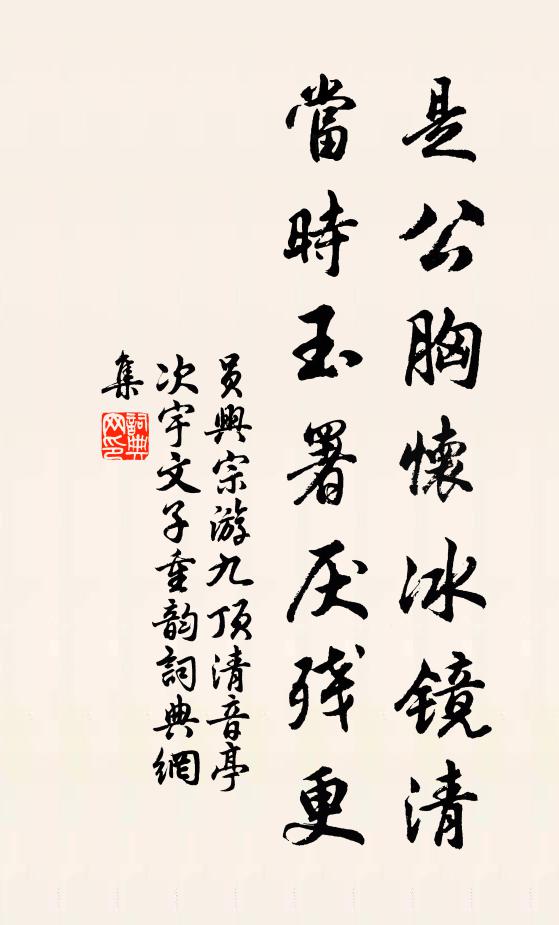 是公胸懷冰鏡清
當時玉署厌残更
員興宗游九頂清音亭
次宇文子重韵詞典網
集
詞典
网印